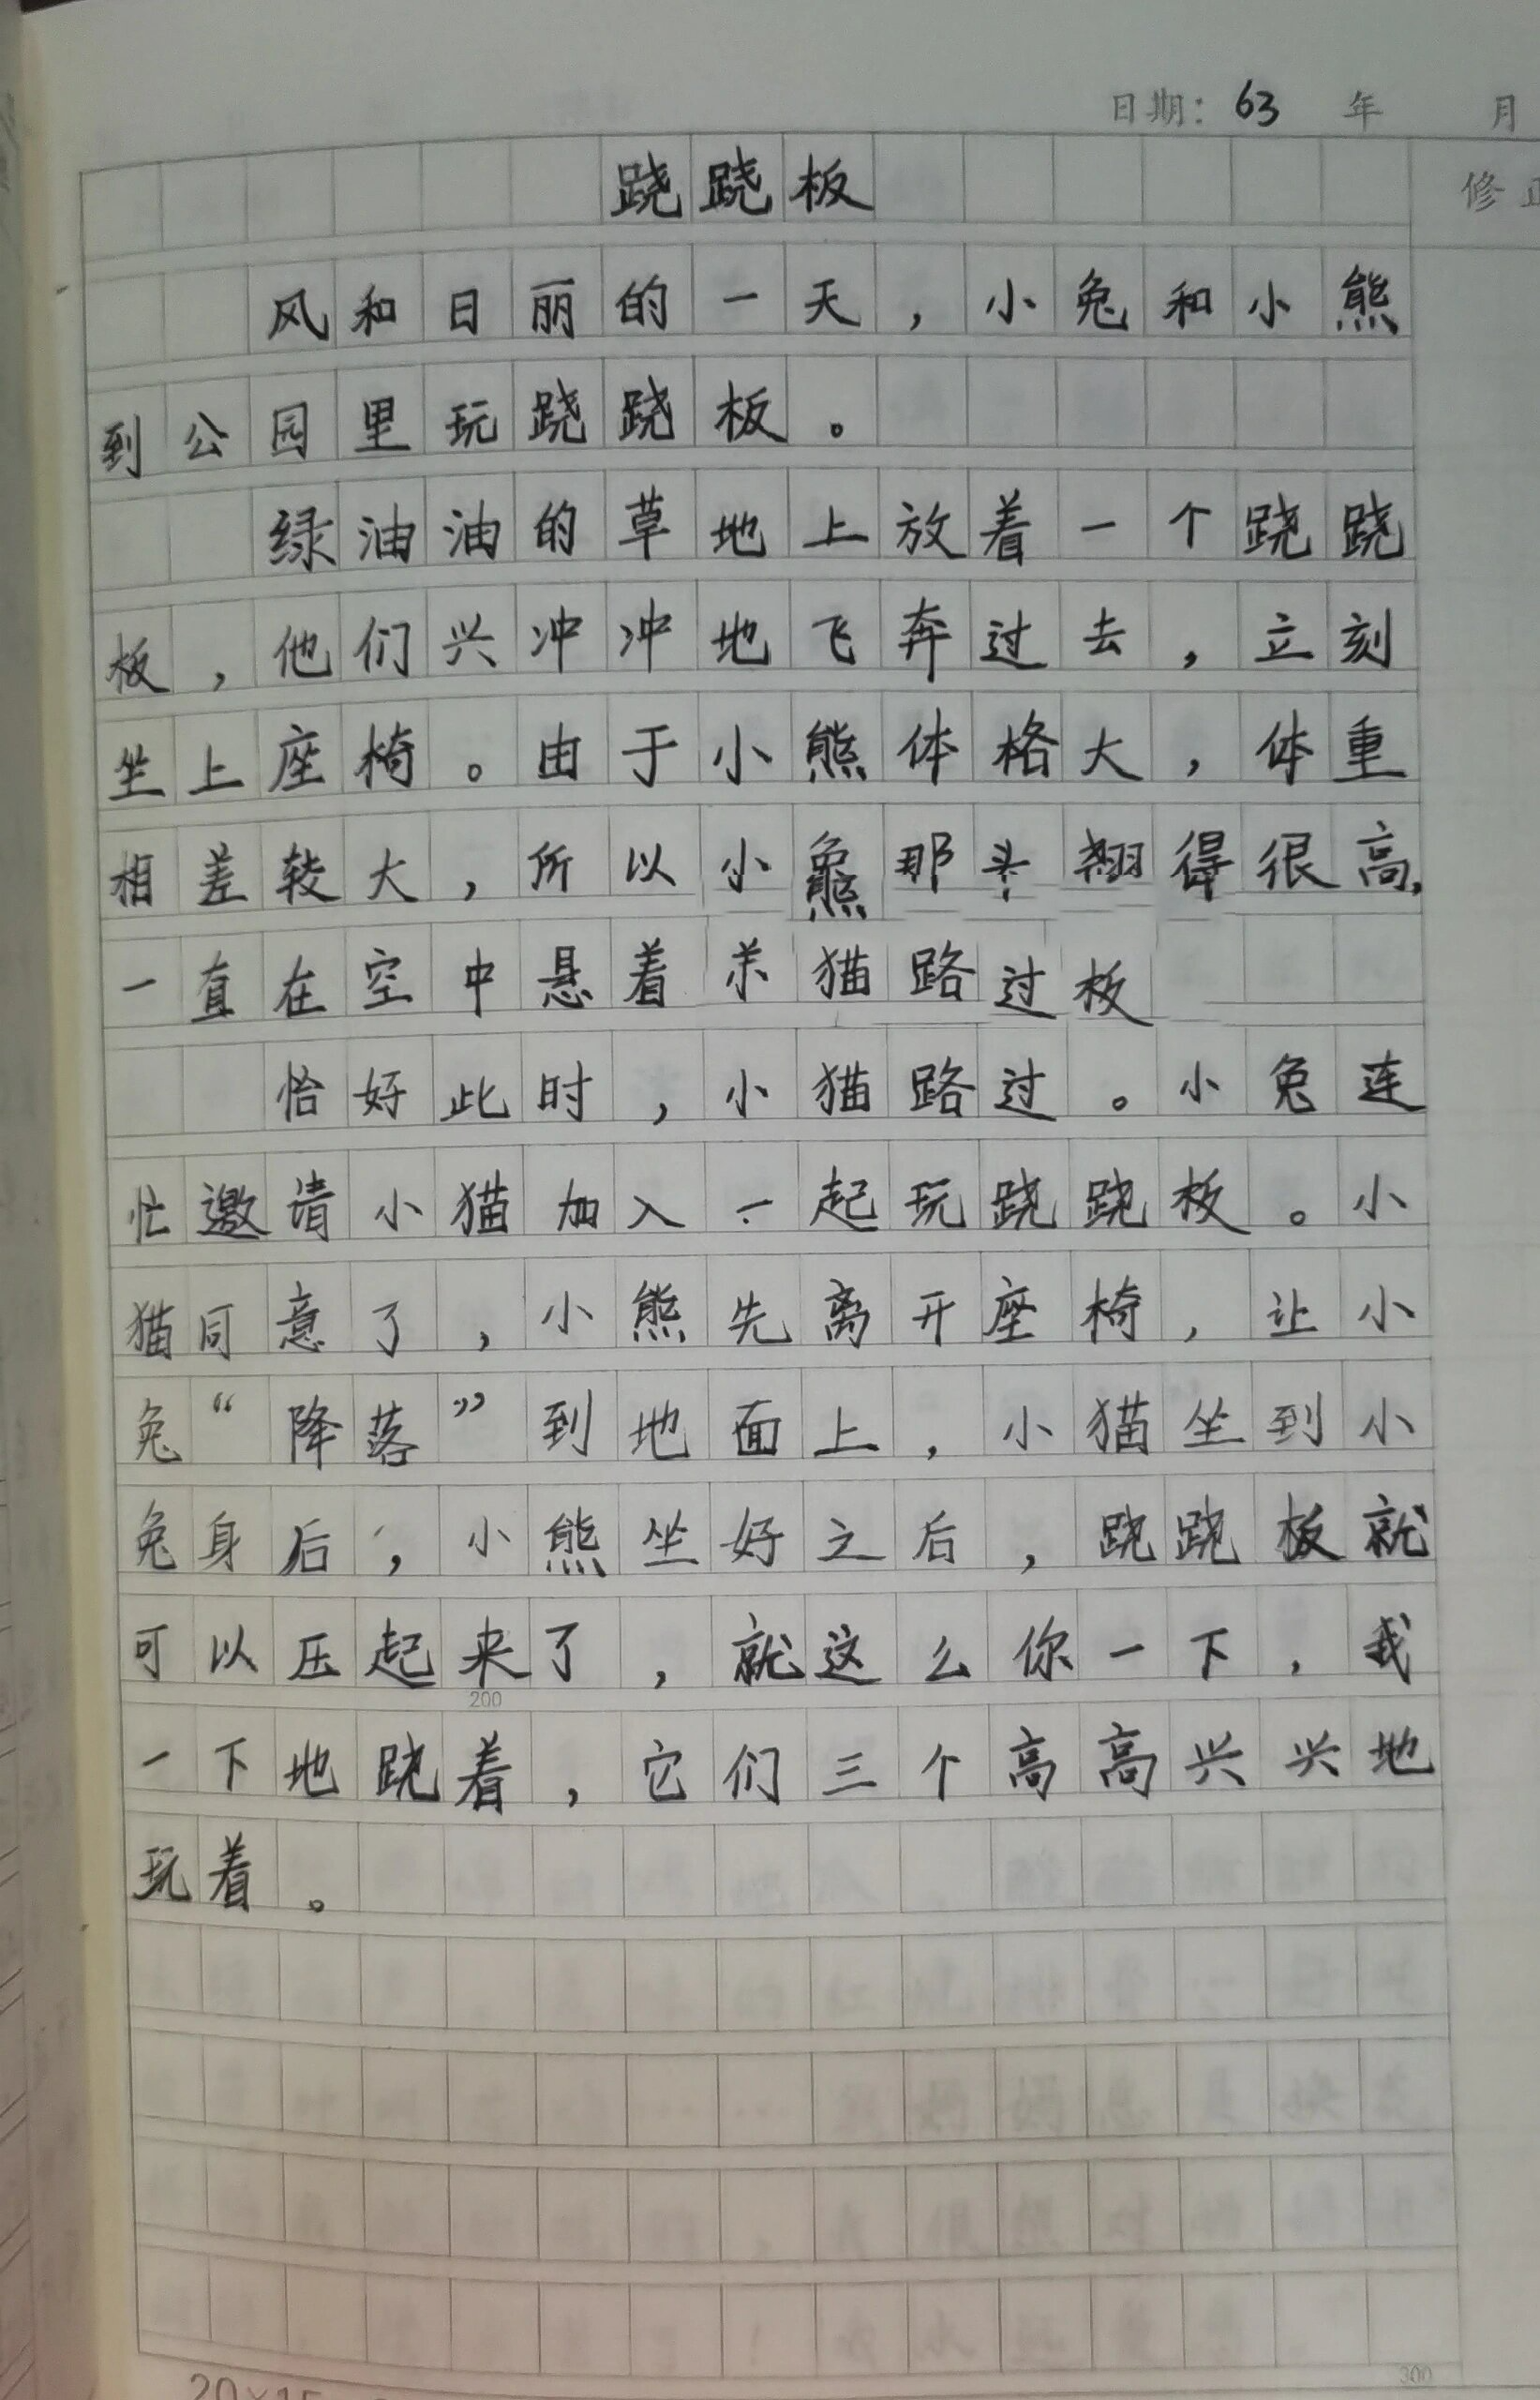 日期：63 年 月
修
跷跷板
风和日丽的一天，小兔和小熊
到公园里玩跷跷板。
绿油油的草地上放着一个跷跷
板，他们兴冲冲地飞奔过去，立刻
坐上座椅。由于小熊体格大，体重
相差较大，所以小 那头翘得很高，
一直在空中悬着 猫路过板
恰好此时，小猫路过。小兔连
忙邀请小猫加入一起玩跷跷板。小
猫同意了，小熊先离开座椅，让小
兔“降落”到地面上，小猫坐到小
兔身后，小熊坐好之后，跷跷板就
可以压起来了，就这么你一下，我
200
一下地跷着，它们三个高高兴兴地
玩着。
300